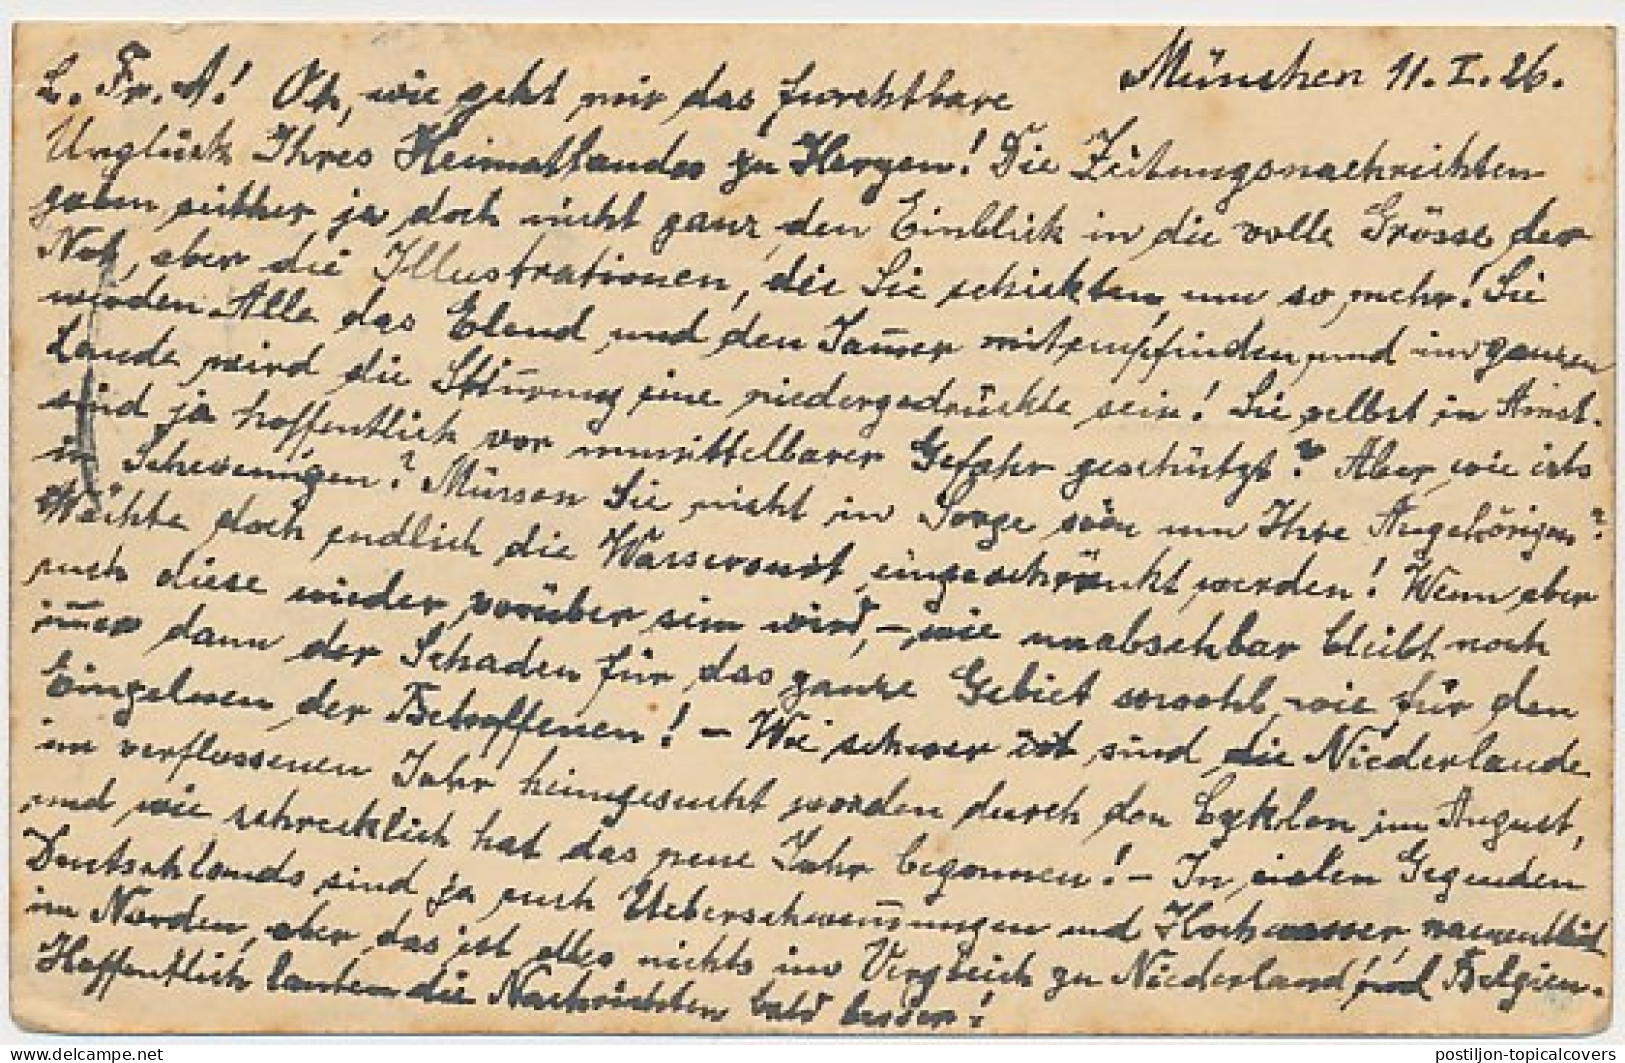 München 11.I.26.
L. Fr. A! Oh, wie geht mir das furchtbare
Unglück Ihres Heimatlandes zu Herzen! Die Zeitungsnachrichten
gaben seither ja doch nicht ganz den Einblick in die volle Grösse der
Not, aber die Illustrationen, die Sie schickten, um so mehr! Sie
werden Alle das Elend und den Jam̄er mitempfinden und im ganzen
Lande wird die Stim̄ung eine niedergedrückte sein! Sie selbst in Amst.
sind ja hoffentlich vor unmittelbarer Gefahr geschützt? Aber wie ists
in Scheveningen? Müssen Sie nicht in Sorge sein um Ihre Angehörigen?
Möchte doch endlich die Wassersnot eingeschränkt werden! Wenn aber
auch diese wieder vorüber sein wird, – wie unabsehbar bleibt noch
im̄er dann der Schaden für das ganze Gebiet sowohl, wie für den
Einzelnen der Betroffenen! – Wie schwer ist sind die Niederlande
im verflossenen Jahr heimgesucht worden durch den Cyklon im August,
und wie schrecklich hat das neue Jahr begonnen! – In vielen Gegenden
Deutschlands sind ja auch Ueberschwem̄ungen und Hochwasser, namentlich
im Norden, aber das ist alles nichts im Vergleich zu Niederland und Belgien.
Hoffentlich lauten die Nachrichten bald besser!
postiljon-topicalcovers